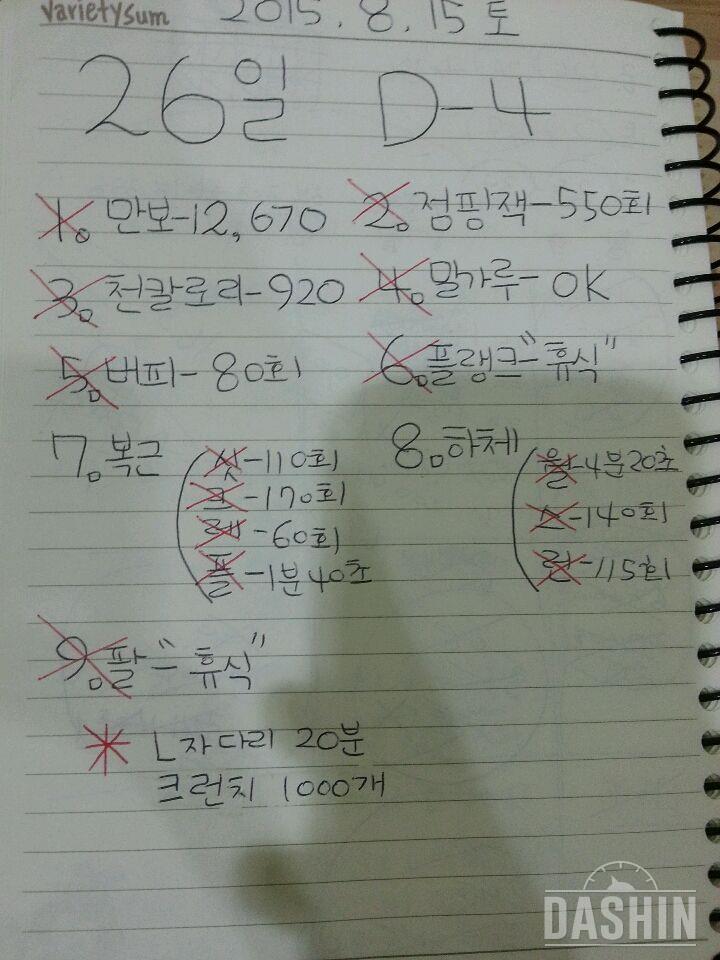 varietysum 2015. 8. 15 토
26일 D-4
1. 만보-12,670 2. 점핑잭-550회
3. 천칼로리-920 4. 밀가루-OK
5. 버피-80회 6. 플랭크-"휴식"
7. 복근 (싯-110회 8. 하체 (월-4분20초
크-170회 스-140회
레-60회 런-115회
플-1분40초
9. 팔-"휴식"
* L자다리 20분
크런치 1000개
DASHIN